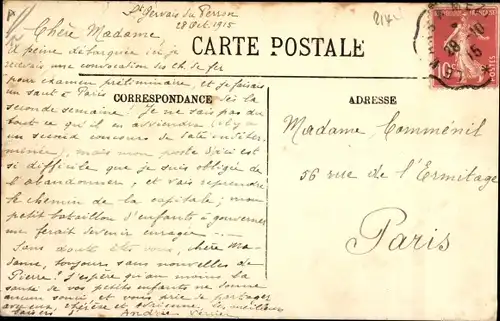 St Gervais du Perron
28 Oct. 1915
Chère Madame
CARTE POSTALE
18-10
15
10
POSTES
A peine débarquée ici je
recevais une convocation des Ch. de fer
pour examen préliminaire, et je faisais
un saut à Paris dès la
CORRESPONDANCE
seconde semaine. Je ne sais pas du
tout ce qu'il en adviendra (il y a
un second concours de date
), mais mon poste d'ici est
si difficile que je suis obligée de
l'abandonner, et vais reprendre
le chemin de la capitale; mon
petit bataillon d'enfants à gouverner
me ferait devenir enragée —
Sans doute êtes vous, chère Ma-
dame, toujours sans nouvelles de
Pierre. J'espère qu'au moins la
santé de vos petits enfants ne donne
aucun souci et vous prie de partager
avec eux, et les meilleurs
baisers Andrée
ADRESSE
Madame Comménil
56 rue de l'Ermitage
Paris